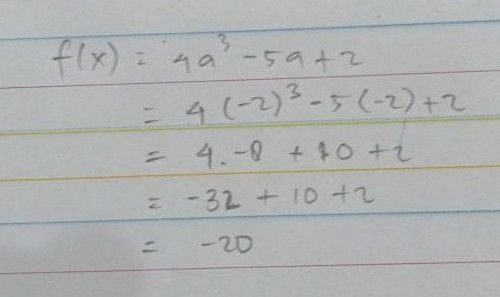 f(x) = 4a³ - 5a + 2
= 4 (-2)³ - 5 (-2) + 2
= 4 . -8 + 10 + 2
= -32 + 10 + 2
= -20